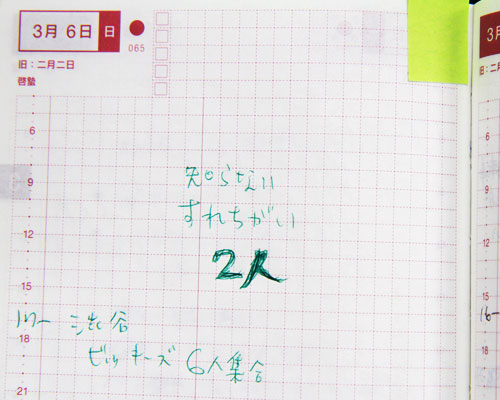 3月 6日 日
065
旧：二月二日
啓蟄
6
9
知らない
すれちがい
12
2人
15
17〜 渋谷
18
ビッキーズ 6人集合
21
3月
旧：
12
15
16〜
18
21